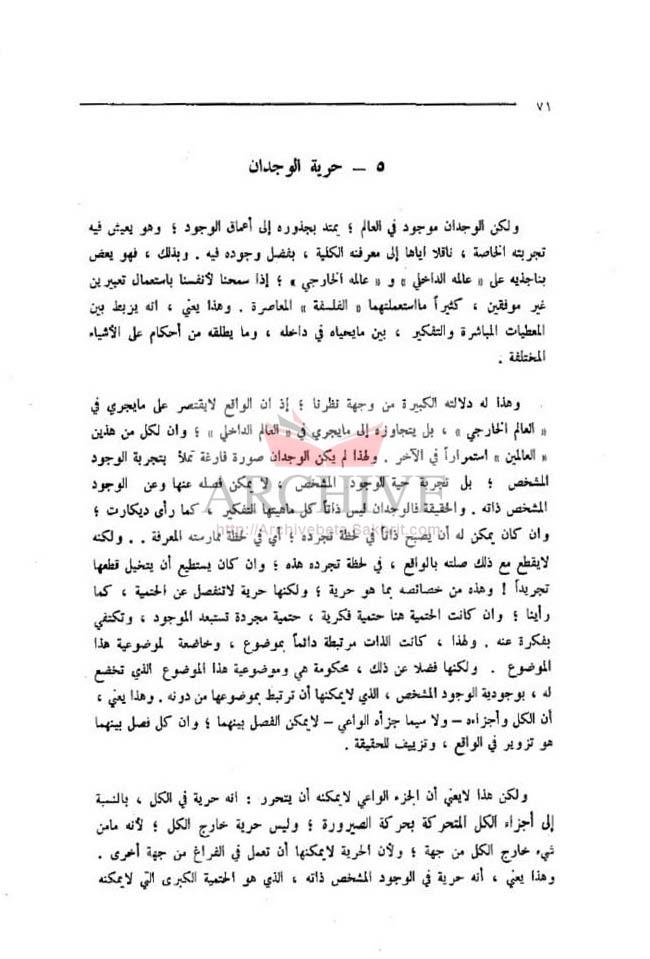 ٧١
٥ — حرية الوجدان
ولكن الوجدان موجود في العالم ؛ يمتد بجذوره إلى أعماق الوجود ؛ وهو يعيش فيه
تجربته الخاصة ، ناقلا اياها إلى معرفته الكلية ، بفضل وجوده فيه . وبذلك ، فهو يعض
بناجذيه على « عالمه الداخلي » و « عالمه الخارجي » ؛ إذا سمحنا لأنفسنا باستعمال تعبيرين
غير موفقين ، كثيراً مااستعملتهما « الفلسفة » المعاصرة . وهذا يعني ، انه يربط بين
المعطيات المباشرة والتفكير ، بين مايحياه في داخله ، وما يطلقه من أحكام على الأشياء
المختلفة .
وهذا له دلالته الكبيرة من وجهة نظرنا ؛ إذ ان الواقع لايقتصر على مايجري في
« العالم الخارجي » ، بل يتجاوزه إلى مايجري في « العالم الداخلي » ؛ وان لكل من هذين
« العالمين » استمراراً في الآخر . ولهذا لم يكن الوجدان صورة فارغة تملأ بتجربة الوجود
المشخص ؛ بل تجربة حية للوجود المشخص ، لا يمكن فصله عنها وعن الوجود
المشخص ذاته . والحقيقة فالوجدان ليس ذاتاً كل ماهيتها التفكير ، كما رأى ديكارت ؛
ARCHIVE
http://Archivebeta.Sakhrit.com
وان كان يمكن له أن يصبح ذاتاً في لحظة تجرده ؛ أي في لحظة ممارسته المعرفة . . ولكنه
لايقطع مع ذلك صلته بالواقع ، في لحظة تجرده هذه ؛ وان كان يستطيع أن يتخيل قطعها
تجريداً ! وهذه من خصائصه بما هو حرية ؛ ولكنها حرية لاتنفصل عن الحتمية ، كما
رأينا ؛ وان كانت الحتمية هنا حتمية فكرية ، حتمية مجردة تستبعد الموجود ، وتكتفي
بفكرة عنه . ولهذا ، كانت الذات مرتبطة دائماً بموضوع ، وخاضعة لموضوعية هذا
الموضوع . ولكنها فضلا عن ذلك ، محكومة هي وموضوعية هذا الموضوع الذي تخضع
له ، بوجودية الوجود المشخص ، الذي لايمكنها أن ترتبط بموضوعها من دونه . وهذا يعني ،
أن الكل وأجزاءه — ولا سيما جزأه الواعي — لايمكن الفصل بينهما ؛ وان كل فصل بينهما
هو تزوير في الواقع ، وتزييف للحقيقة .
ولكن هذا لايعني أن الجزء الواعي لايمكنه أن يتحرر : انه حرية في الكل ، بالنسبة
إلى أجزاء الكل المتحركة بحركة الصيرورة ؛ وليس حرية خارج الكل ؛ لأنه مامن
شيء خارج الكل من جهة ؛ ولأن الحرية لايمكنها أن تعمل في الفراغ من جهة أخرى .
وهذا يعني ، أنه حرية في الوجود المشخص ذاته ، الذي هو الحتمية الكبرى التي لايمكنه